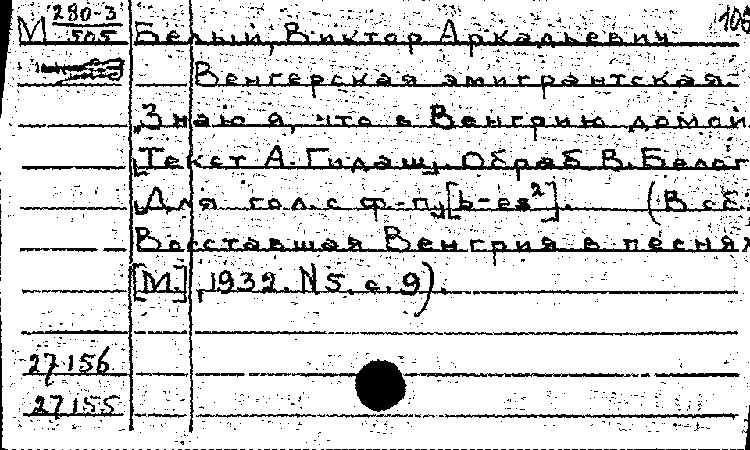 М 280-3 106
505 Белый, Виктор Аркадьевич
Венгерская эмигрантская.
„Знаю я, что в Венгрию домой
[Текст А. Гидаш]. Обраб. В. Белог
Для гол. с ф-п. [b-es²]. (В сб.
Восставшая Венгрия в песнях
[М.], 1932. N 5. с. 9).
27156
27155